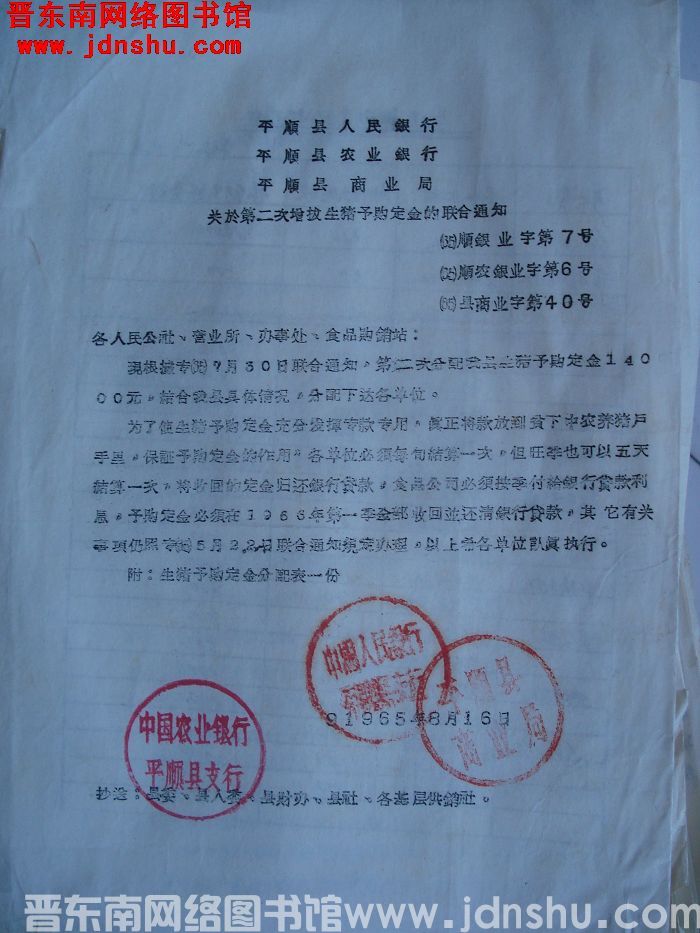 晋东南网络图书馆
www.jdnshu.com
平順县人民銀行
平順县农业銀行
平順县商业局
关於第二次增拔生猪予购定金的联合通知
順銀业字第7号
順农銀业字第6号
县商业字第40号
各人民公社、营业所、办事处、食品购銷站：
現根据专 7月30日联合通知，第二次分配我县生猪予购定金140
00元，結合我县具体情况，分配下达各单位。
为了使生猪予购定金充分发揮专款专用，眞正将款放到贫下中农养猪户
手里，保証予购定金的作用，各单位必须每旬結算一次，但旺季也可以五天
結算一次，将收回的定金归还銀行貸款，食品公司必须按季付給銀行貸款利
息，予购定金必须在1966年第一季全部收回並还清銀行貸款，其它有关
事项仍照专 5月22日联合通知规定办理，以上希各单位認眞执行。
附：生猪予购定金分配表一份
中國人民銀行
平順县支行
平順县
商业局
中国农业銀行
平順县支行
1965年8月16日
抄送：县委、县人委、县财办、县社、各基层供銷社。
晋东南网络图书馆www.jdnshu.com